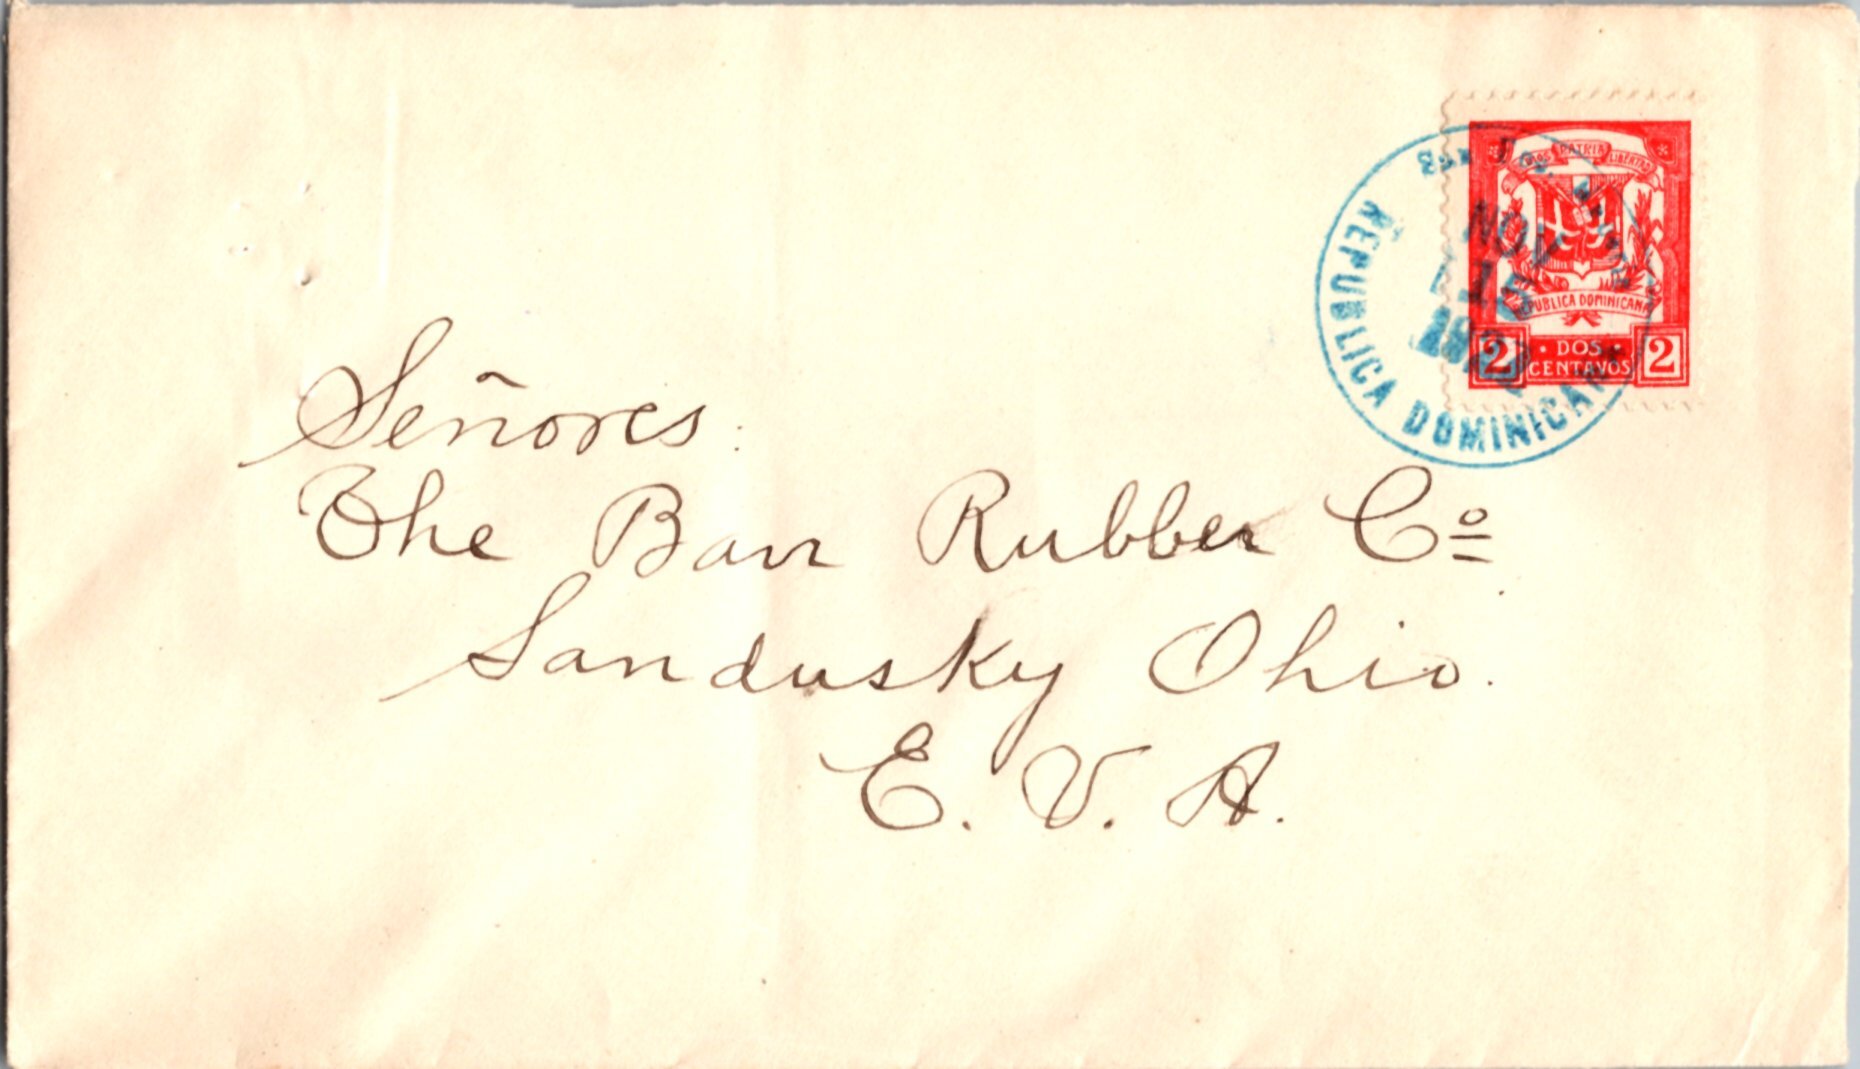 DIOS PATRIA LIBERTAD
REPUBLICA DOMINICANA
2 · DOS · 2
CENTAVOS
NOV
15
REPUBLICA DOMINICANA
Señores.
The Barr Rubber Cº
Sandusky Ohio.
E. U. A.